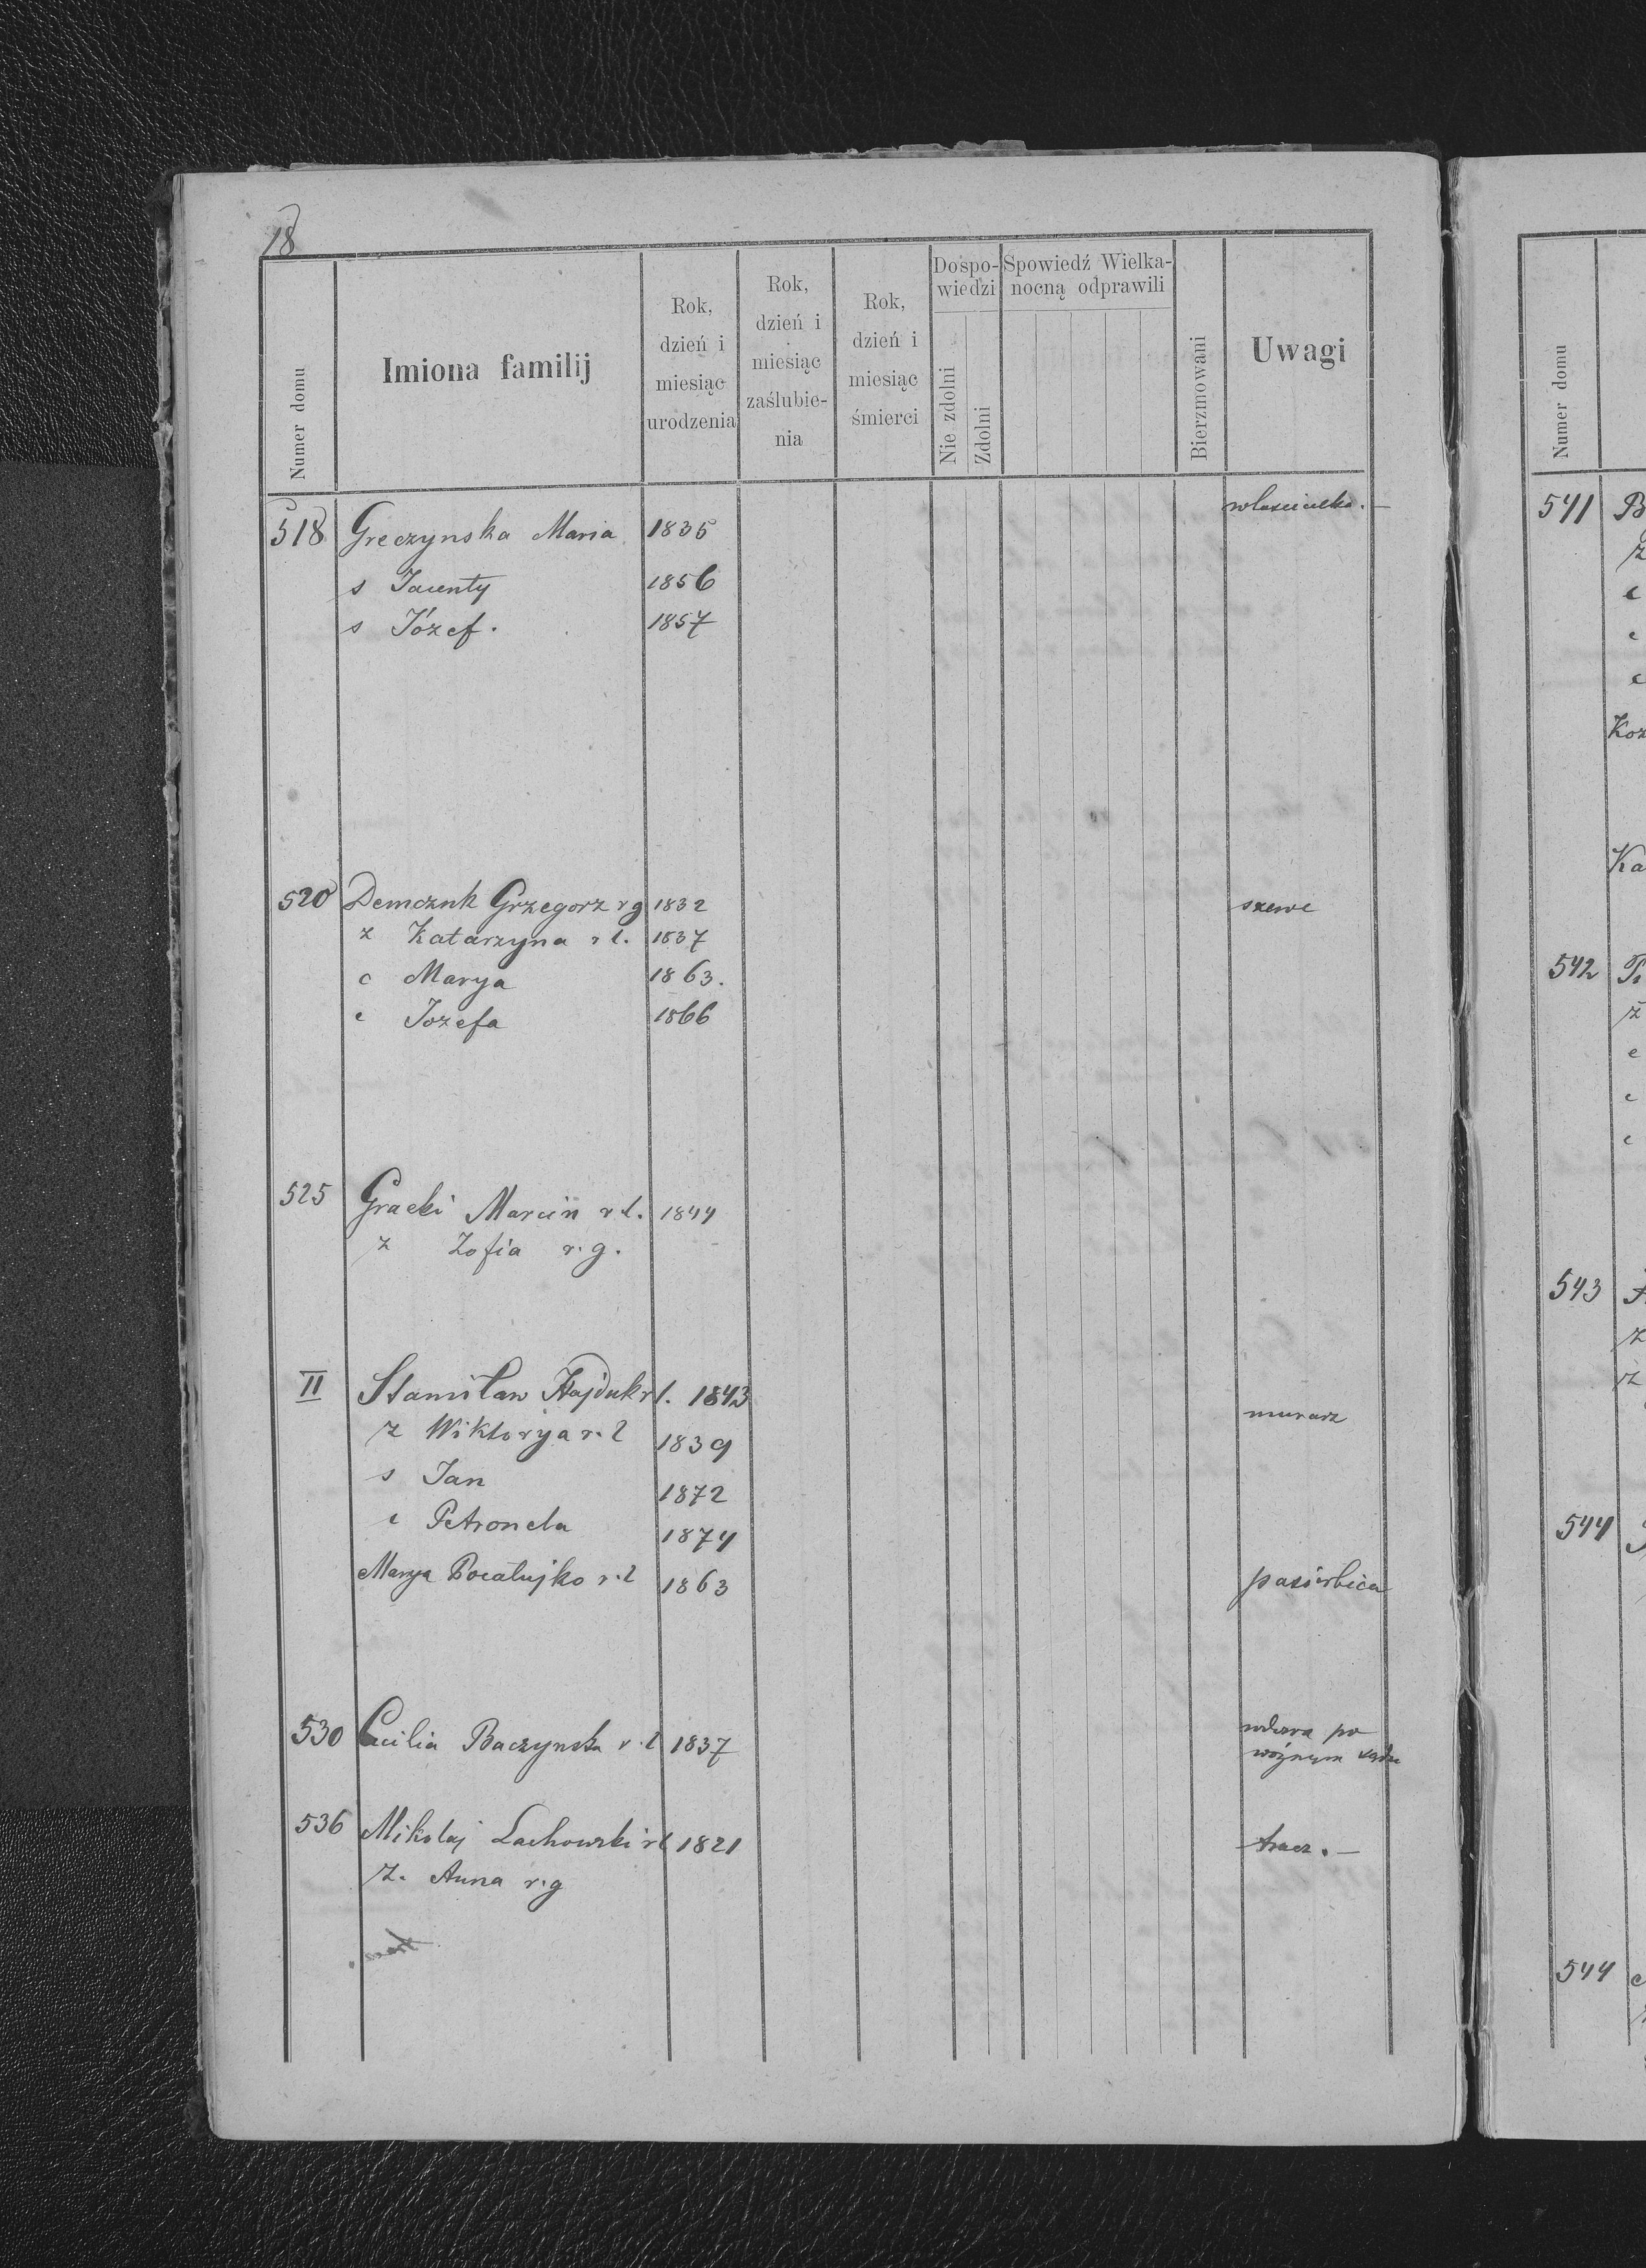 18
Numer domu
Imiona familij
Rok,
dzień i
miesiąc
urodzenia
Rok,
dzień i
miesiąc
zaślubie-
nia
Rok,
dzień i
miesiąc
śmierci
Do spo-
wiedzi
Nie zdolni
Zdolni
Spowiedź Wielka-
nocną odprawili
Bierzmowani
Uwagi
518 Greczynska Maria 1835 włascicielka.—
s Jacenty 1856
s Józef. 1857
520 Demczuk Grzegorz rg 1832 szewc
z Katarzyna r l. 1837
c Marya 1863.
c Jozefa 1866
525 Gracki Marcin r l. 1844
z Zofia r. g.
II Stanisław Hajduk r l. 1843 murarz
z Wiktorya r. l 1839
s Jan 1872
c Petronela 1874
Marya Pocałujko r. l 1863 pasierbica
530 Cecilia Baczynska r. l 1837 wdowa po
woźnym sądu
536 Mikołaj Lachowski r l 1821 tracz.—
z. Anna r. g
Numer domu
541 B
z
c
c
c
Koz
Ka
542
z
c
c
c
543
z
z
544
544